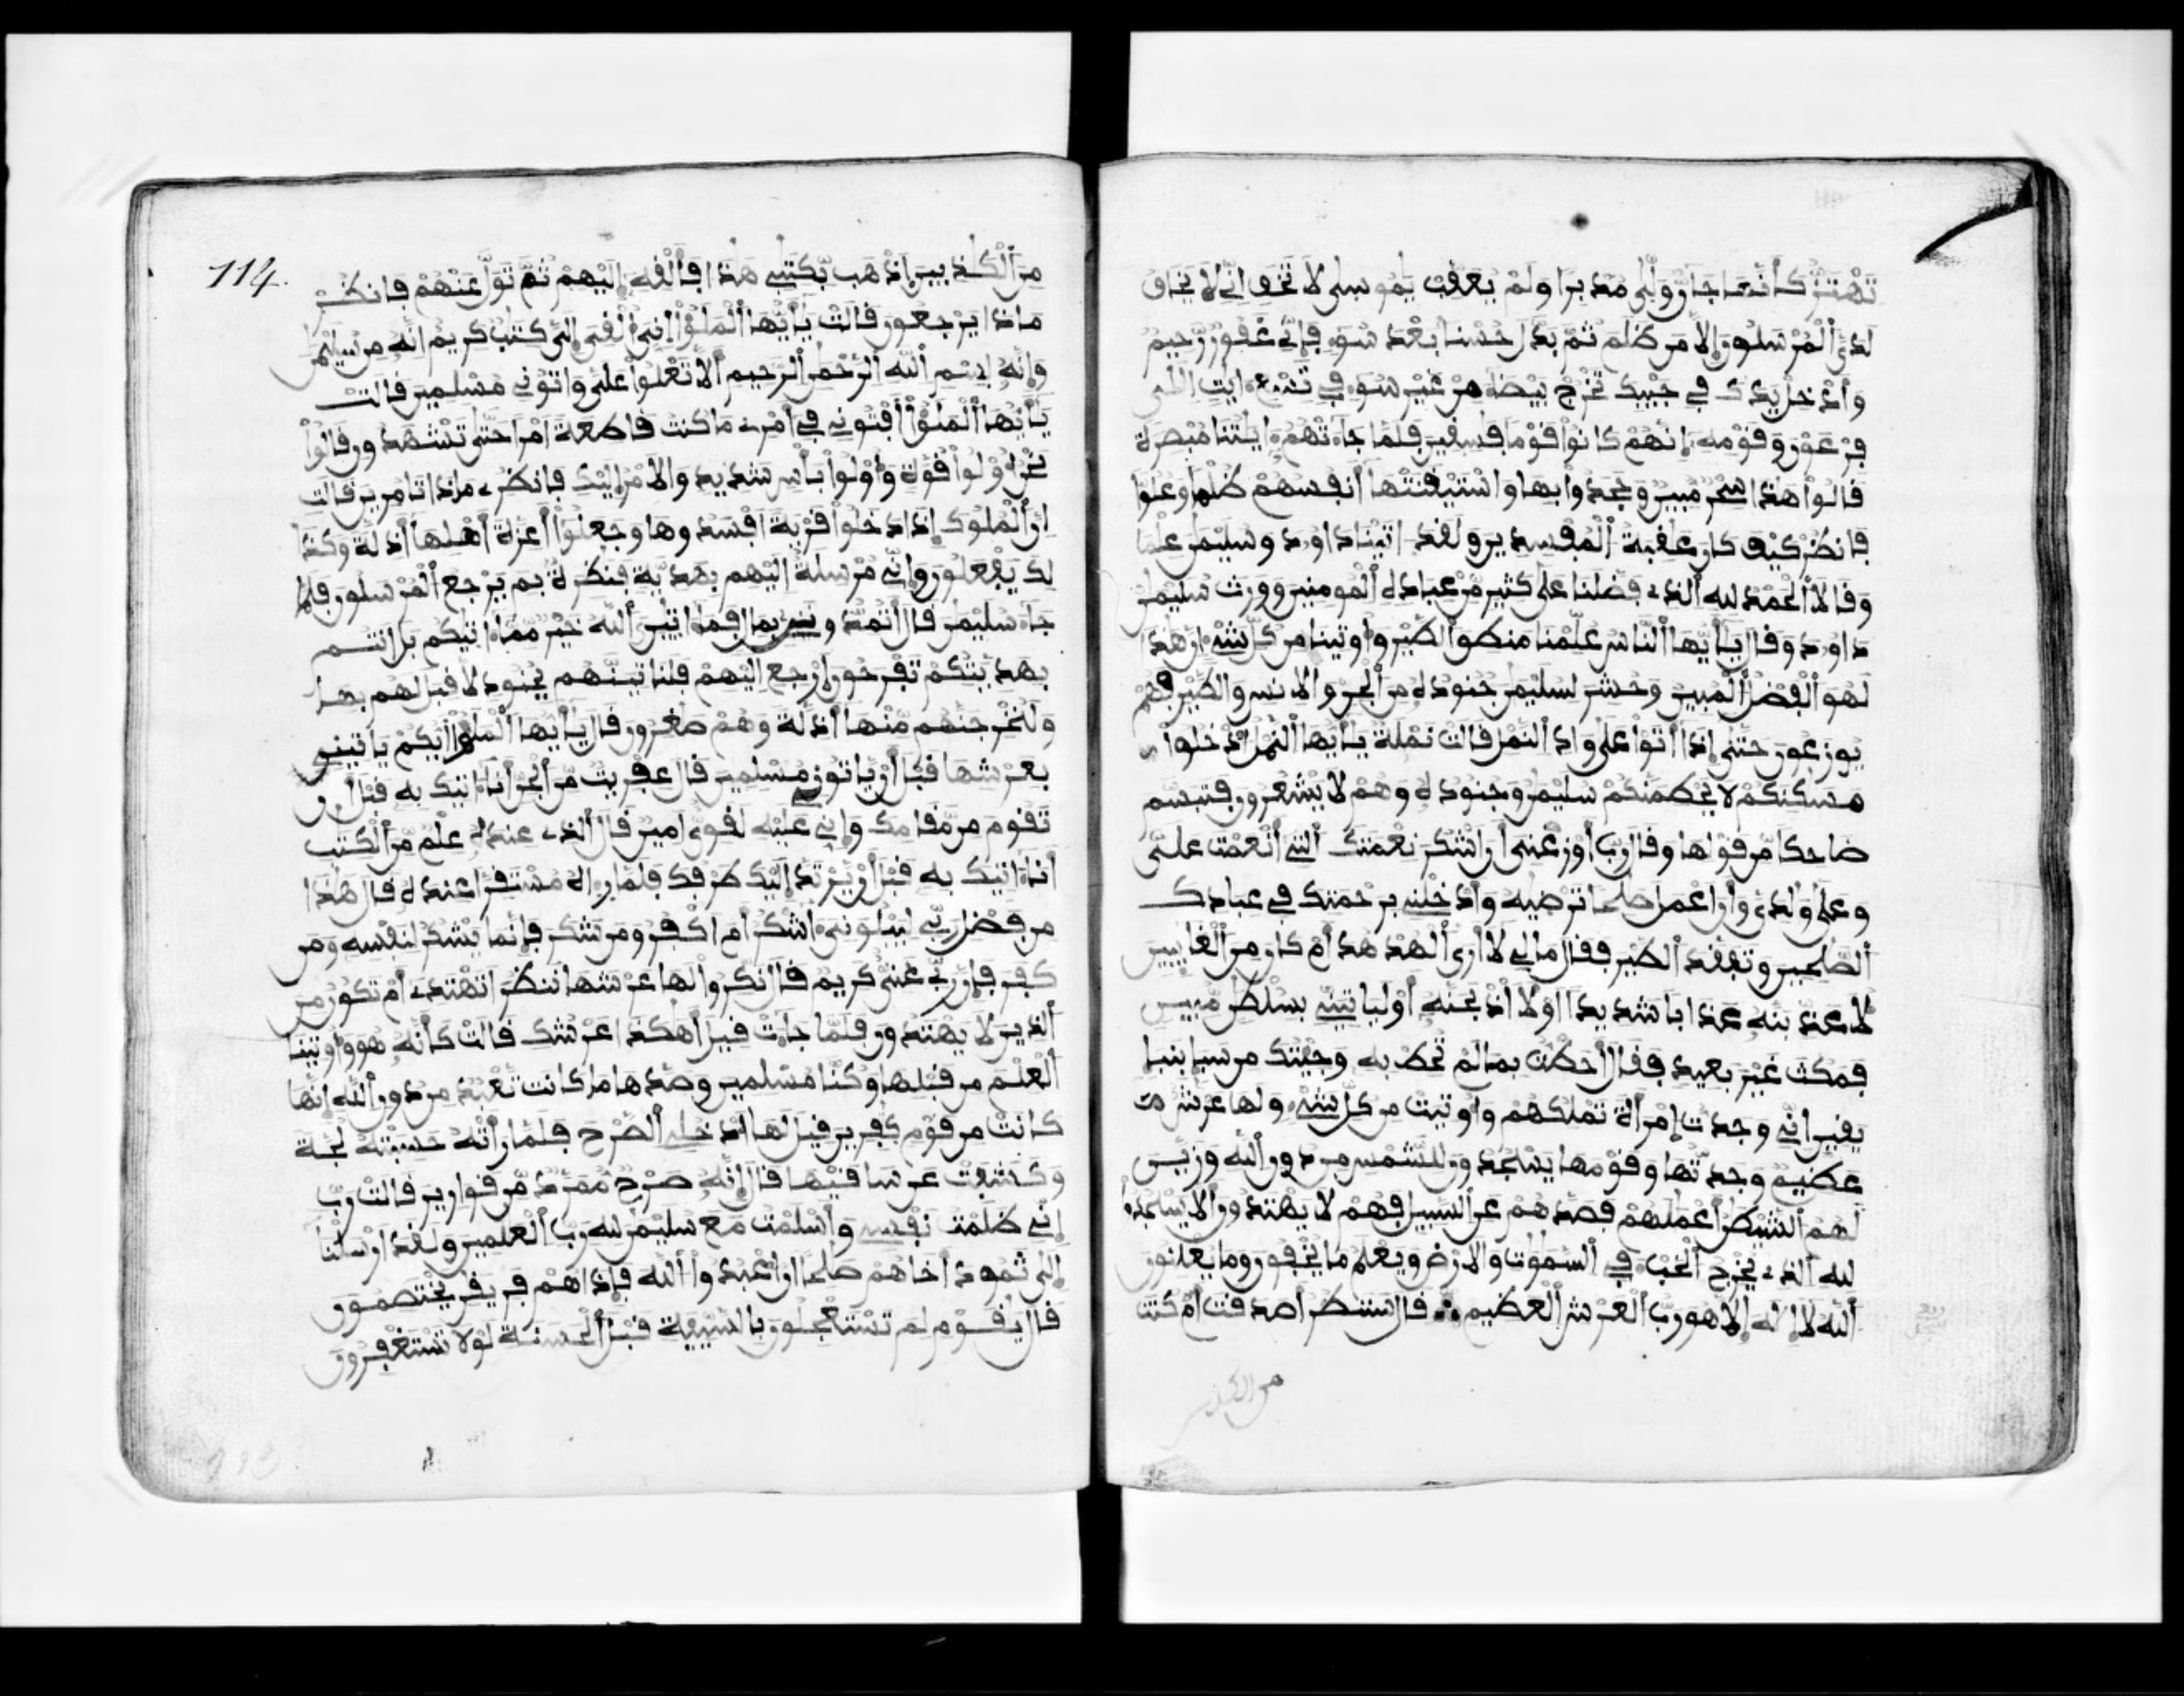 تَهْتَزُّ كَأَنَّهَا جَآنٌّ وَلّٰى مُدْبِرًا وَلَمْ يُعَقِّبْ يٰمُوسٰى لَا تَخَفْ اِنِّى لَا يَخَافُ
لَدَىَّ ٱلْمُرْسَلُونَ إِلَّا مَن ظَلَمَ ثُمَّ بَدَّلَ حُسْنًا بَعْدَ سُوٓءٍ فَإِنِّى غَفُورٌ رَّحِيمٌ
وَأَدْخِلْ يَدَكَ فِى جَيْبِكَ تَخْرُجْ بَيْضَآءَ مِنْ غَيْرِ سُوٓءٍ فِى تِسْعِ ءَايٰتٍ اِلٰى
فِرْعَوْنَ وَقَوْمِهِ إِنَّهُمْ كَانُوا۟ قَوْمًا فٰسِقِينَ فَلَمَّا جَآءَتْهُمُ ءَايٰتُنَا مُبْصِرَةً
قَالُوا۟ هٰذَا سِحْرٌ مُّبِينٌ وَجَحَدُوا۟ بِهَا وَاسْتَيْقَنَتْهَا أَنفُسُهُمْ ظُلْمًا وَعُلُوًّا
فَانظُرْ كَيْفَ كَانَ عٰقِبَةُ ٱلْمُفْسِدِينَ وَلَقَدَ اتَيْنَا دَاوُدَ وَسُلَيْمٰنَ عِلْمًا
وَقَالَا ٱلْحَمْدُ لِلهِ ٱلَّذِى فَضَّلَنَا عَلٰى كَثِيرٍ مِّنْ عِبَادِهِ ٱلْمُومِنِينَ وَوَرِثَ سُلَيْمٰنُ
دَاوُدَ وَقَالَ يٰأَيُّهَا ٱلنَّاسُ عُلِّمْنَا مَنطِقَ ٱلطَّيْرِ وَأُوتِينَا مِن كُلِّ شَىْءٍ إِنَّ هٰذَا
لَهُوَ ٱلْفَضْلُ ٱلْمُبِينُ وَحُشِرَ لِسُلَيْمٰنَ جُنُودُهُ مِنَ ٱلْجِنِّ وَالْاِنسِ وَالطَّيْرِ فَهُمْ
يُوزَعُونَ حَتّٰى إِذَا أَتَوْا۟ عَلٰى وَادِ ٱلنَّمْلِ قَالَتْ نَمْلَةٌ يٰأَيُّهَا ٱلنَّمْلُ ٱدْخُلُوا۟
مَسٰكِنَكُمْ لَا يَحْطِمَنَّكُمْ سُلَيْمٰنُ وَجُنُودُهُ وَهُمْ لَا يَشْعُرُونَ فَتَبَسَّمَ
ضَاحِكًا مِّن قَوْلِهَا وَقَالَ رَبِّ أَوْزِعْنِى أَنَ اَشْكُرَ نِعْمَتَكَ ٱلَّتِى أَنْعَمْتَ عَلَىَّ
وَعَلٰى وٰلِدَىَّ وَأَنَ اَعْمَلَ صٰلِحًا تَرْضٰيهُ وَأَدْخِلْنِى بِرَحْمَتِكَ فِى عِبَادِكَ
ٱلصّٰلِحِينَ وَتَفَقَّدَ ٱلطَّيْرَ فَقَالَ مَا لِى لَا أَرَى ٱلْهُدْهُدَ أَمْ كَانَ مِنَ ٱلْغَآئِبِينَ
لَأُعَذِّبَنَّهُ عَذَابًا شَدِيدًا اَوْ لَأَاذْبَحَنَّهُ أَوْ لَيَاتِيَنِّى بِسُلْطٰنٍ مُّبِينٍ
فَمَكُثَ غَيْرَ بَعِيدٍ فَقَالَ أَحَطتُّ بِمَا لَمْ تُحِطْ بِهِ وَجِئْتُكَ مِن سَبَإٍ بِنَبَإٍ
يَقِينٍ اِنِّى وَجَدتُّ اِمْرَأَةً تَمْلِكُهُمْ وَأُوتِيَتْ مِن كُلِّ شَىْءٍ وَلَهَا عَرْشٌ
عَظِيمٌ وَجَدتُّهَا وَقَوْمَهَا يَسْجُدُونَ لِلشَّمْسِ مِن دُونِ ٱللهِ وَزَيَّنَ
لَهُمُ ٱلشَّيْطٰنُ أَعْمٰلَهُمْ فَصَدَّهُمْ عَنِ ٱلسَّبِيلِ فَهُمْ لَا يَهْتَدُونَ أَلَّا يَسْجُدُوا۟
لِلهِ ٱلَّذِى يُخْرِجُ ٱلْخَبْءَ فِى ٱلسَّمٰوٰتِ وَالْاَرْضِ وَيَعْلَمُ مَا يُخْفُونَ وَمَا يُعْلِنُونَ
ٱللهُ لَا إِلٰهَ إِلَّا هُوَ رَبُّ ٱلْعَرْشِ ٱلْعَظِيمِ ۞ قَالَ سَنَنظُرُ أَصَدَقْتَ أَمْ كُنتَ
من الكذبين
114.
مِنَ ٱلْكٰذِبِينَ اِذْهَب بِّكِتٰبِى هٰذَا فَأَلْقِهِ إِلَيْهِمْ ثُمَّ تَوَلَّ عَنْهُمْ فَانظُرْ
مَاذَا يَرْجِعُونَ قَالَتْ يٰأَيُّهَا ٱلْمَلَؤُا۟ اِنِّىَ أُلْقِىَ إِلَىَّ كِتٰبٌ كَرِيمٌ اِنَّهُ مِن سُلَيْمٰنَ
وَإِنَّهُ بِسْمِ ٱللهِ ٱلرَّحْمٰنِ ٱلرَّحِيمِ أَلَّا تَعْلُوا۟ عَلَىَّ وَاتُونِى مُسْلِمِينَ قَالَتْ
يٰأَيُّهَا ٱلْمَلَؤُا۟ أَفْتُونِى فِى أَمْرِى مَا كُنتُ قَاطِعَةً اَمْرًا حَتّٰى تَشْهَدُونِ قَالُوا۟
نَحْنُ أُو۟لُوا۟ قُوَّةٍ وَأُو۟لُوا۟ بَأْسٍ شَدِيدٍ وَالْاَمْرُ إِلَيْكِ فَانظُرِى مَاذَا تَامُرِينَ قَالَتِ
اِنَّ ٱلْمُلُوكَ إِذَا دَخَلُوا۟ قَرْيَةً اَفْسَدُوهَا وَجَعَلُوا۟ أَعِزَّةَ أَهْلِهَا أَذِلَّةً وَكَذٰ
لِكَ يَفْعَلُونَ وَإِنِّى مُرْسِلَةٌ اِلَيْهِم بِهَدِيَّةٍ فَنٰظِرَةٌ بِمَ يَرْجِعُ ٱلْمُرْسَلُونَ فَلَمَّا
جَآءَ سُلَيْمٰنَ قَالَ أَتُمِدُّونَنِ بِمَالٍ فَمَا ءَاتٰينِ ٱللهُ خَيْرٌ مِّمَّا ءَاتٰيكُم بَلَ اَنتُم
بِهَدِيَّتِكُمْ تَفْرَحُونَ اَرْجِعِ اِلَيْهِمْ فَلَنَاتِيَنَّهُم بِجُنُودٍ لَّا قِبَلَ لَهُم بِهَا
وَلَنُخْرِجَنَّهُم مِّنْهَا أَذِلَّةً وَهُمْ صٰغِرُونَ قَالَ يٰأَيُّهَا ٱلْمَلَؤُا۟ أَيُّكُمْ يَاتِينِى
بِعَرْشِهَا قَبْلَ أَنْ يَّاتُونِى مُسْلِمِينَ قَالَ عِفْرِيتٌ مِّنَ ٱلْجِنِّ أَنَا ءَاتِيكَ بِهِ قَبْلَ أَن
تَقُومَ مِن مَّقَامِكَ وَإِنِّى عَلَيْهِ لَقَوِىٌّ اَمِينٌ قَالَ ٱلَّذِى عِندَهُ عِلْمٌ مِّنَ ٱلْكِتٰبِ
أَنَا ءَاتِيكَ بِهِ قَبْلَ أَنْ يَّرْتَدَّ إِلَيْكَ طَرْفُكَ فَلَمَّا رَءَاهُ مُسْتَقِرًّا عِندَهُ قَالَ هٰذَا
مِن فَضْلِ رَبِّى لِيَبْلُوَنِىَ ءَآشْكُرُ أَمَ اَكْفُرُ وَمَن شَكَرَ فَإِنَّمَا يَشْكُرُ لِنَفْسِهِ وَمَن
كَفَرَ فَإِنَّ رَبِّى غَنِىٌّ كَرِيمٌ قَالَ نَكِّرُوا۟ لَهَا عَرْشَهَا نَنظُرَ اَتَهْتَدِى أَمْ تَكُونُ مِنَ
ٱلَّذِينَ لَا يَهْتَدُونَ فَلَمَّا جَآءَتْ قِيلَ أَهٰكَذَا عَرْشُكِ قَالَتْ كَأَنَّهُ هُوَ وَأُوتِينَا
ٱلْعِلْمَ مِن قَبْلِهَا وَكُنَّا مُسْلِمِينَ وَصَدَّهَا مَا كَانَت تَّعْبُدُ مِن دُونِ ٱللهِ إِنَّهَا
كَانَتْ مِن قَوْمٍ كٰفِرِينَ قِيلَ لَهَا ٱدْخُلِى ٱلصَّرْحَ فَلَمَّا رَأَتْهُ حَسِبَتْهُ لُجَّةً
وَكَشَفَتْ عَن سَاقَيْهَا قَالَ إِنَّهُ صَرْحٌ مُّمَرَّدٌ مِّن قَوَارِيرَ قَالَتْ رَبِّ
إِنِّى ظَلَمْتُ نَفْسِى وَأَسْلَمْتُ مَعَ سُلَيْمٰنَ لِلهِ رَبِّ ٱلْعٰلَمِينَ وَلَقَدَ اَرْسَلْنَا
إِلٰى ثَمُودَ أَخَاهُمْ صٰلِحًا أَنُ اعْبُدُوا۟ ٱللهَ فَإِذَا هُمْ فَرِيقٰنِ يَخْتَصِمُونَ
قَالَ يٰقَوْمِ لِمَ تَسْتَعْجِلُونَ بِالسَّيِّئَةِ قَبْلَ ٱلْحَسَنَةِ لَوْلَا تَسْتَغْفِرُونَ